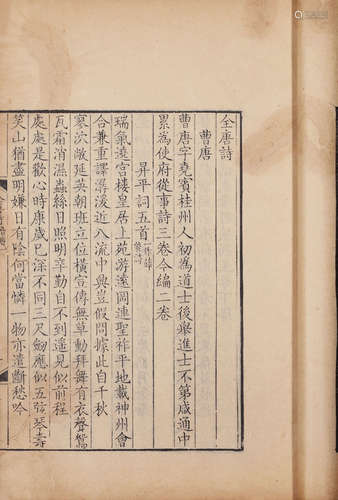 全唐詩
曹唐
曹唐字堯賓桂州人初為道士後舉進士不第咸通中
累為使府從事詩三卷今編二卷
昇平詞五首
瑞氣遶宮樓皇居上苑游遠岡連聖祚平地載神州會
合兼重譯潺湲近八流中興豈假問據此自千秋
寥泬敞延英朝班立位橫宣傳無草動拜舞有衣聲鴛
瓦霜消濕蟲絲日照明辛勤自不到遥見似前程
處處是歡心時康歲已深不同三尺劍應似五弦琴壽
笑山猶盡明嫌日有陰何當憐一物亦遣斷愁吟